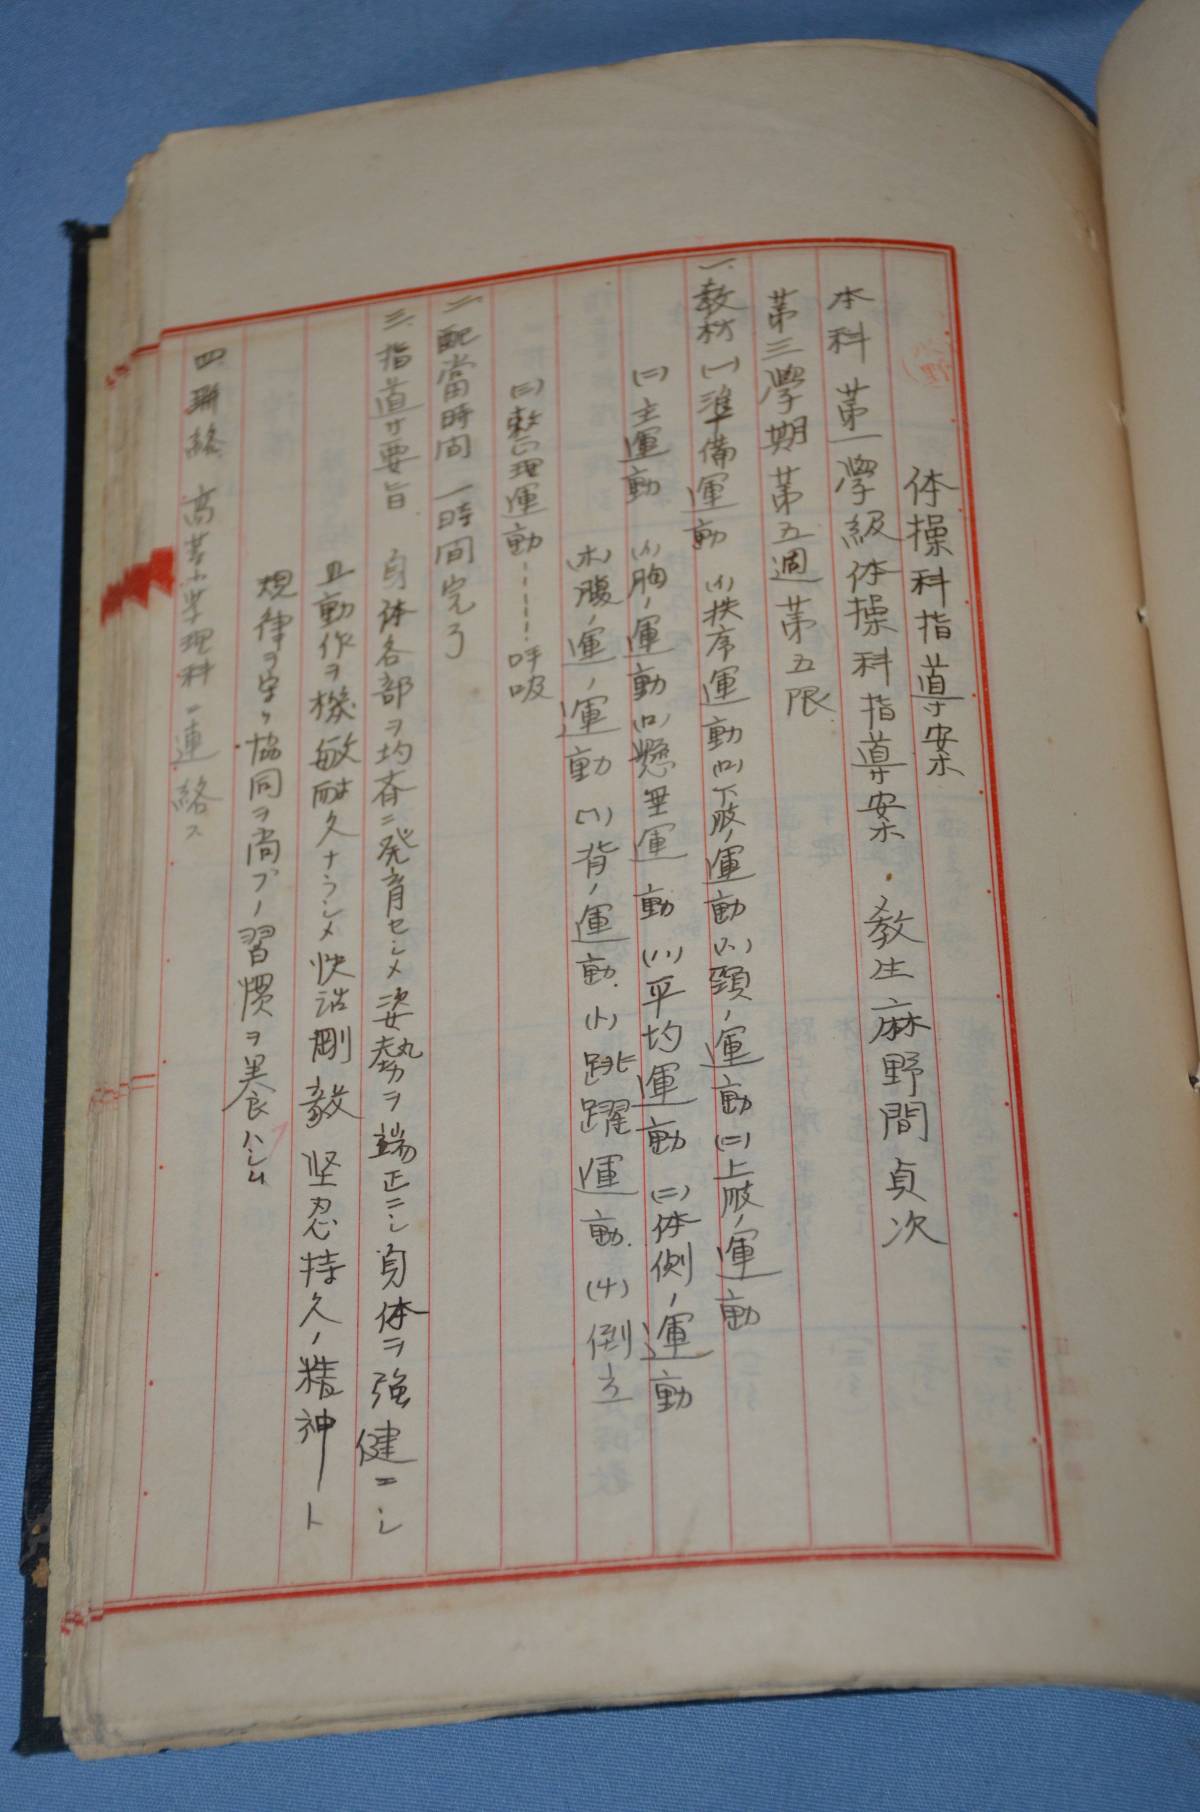 体操科指導案
本科第一学級体操科指導案・教生麻野間貞次
第三学期第五週第五限
一、教材(一)準備運動(イ)秩序運動(ロ)下肢ノ運動(ハ)頸ノ運動(ニ)上肢ノ運動
(二)主運動(イ)胸ノ運動(ロ)懸垂運動(ハ)平均運動(ニ)体側ノ運動
(ホ)腹ノ運ノ運動(ヘ)背ノ運動.(ト)跳躍運動.(チ)倒立
(三)整理運動------呼吸
二、配當時間 一時間完了
三.指導ノ要旨 身体各部ヲ均斉ニ発育セシメ姿勢ヲ端正ニシ身体ヲ強健ニシ
且動作ヲ機敏耐久ナラシメ快活剛毅堅忍持久ノ精神ト
規律ヲ守リ協同ヲ尚ブノ習慣ヲ養ハシム
四聯絡 高等小学理科ニ連絡ス